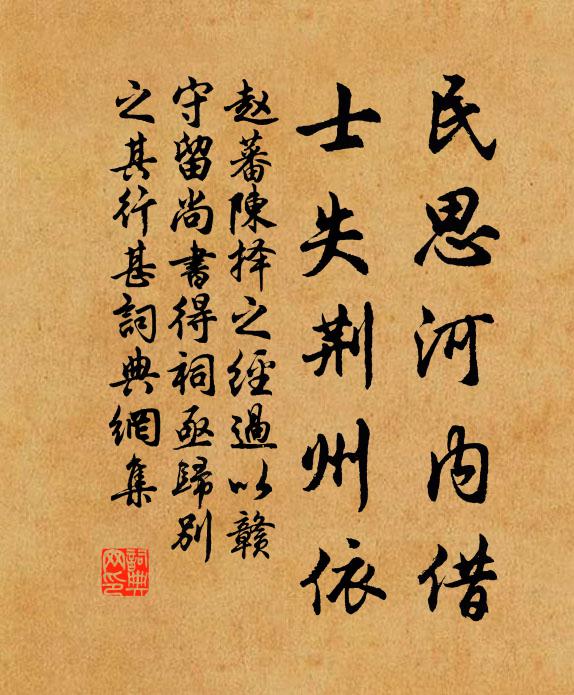 民思河内借
士失荆州依
赵蕃陳择之經過以贛
守留尚書得祠亟歸别
之其行甚詞典網集
詞典网印